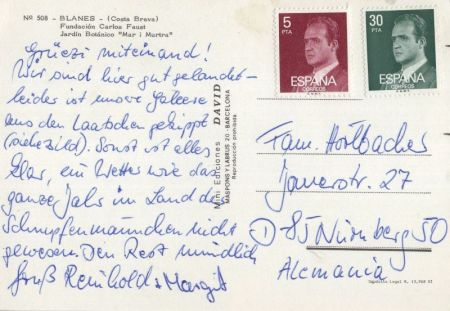 Nº 508 - BLANES - (Costa Brava)
Fundación Carlos Faust
Jardín Botánico "Mar i Murtra"
Grüezi miteinand!
Wir sind hier gut gelandet -
leider ist unsre Galeere
aus den Laatschen gekippt
(siehe Bild). Sonst ist alles
klar, ein Wetter wie das
ganze Jahr im Land der
Schnupfenmännchen nicht
gewesen. Den Rest mündlich
Gruß Reinhold & Margit
Mini Ediciones DAVID
MASPONS Y LABROS 20 - BARCELONA
Reproducción prohibida
5
PTA
ESPAÑA
CORREOS
30
PTA
ESPAÑA
CORREOS
Fam. Hortbacher
Jauerstr. 27
D 85 Nürnberg 50
Alemania
Depósito Legal B.